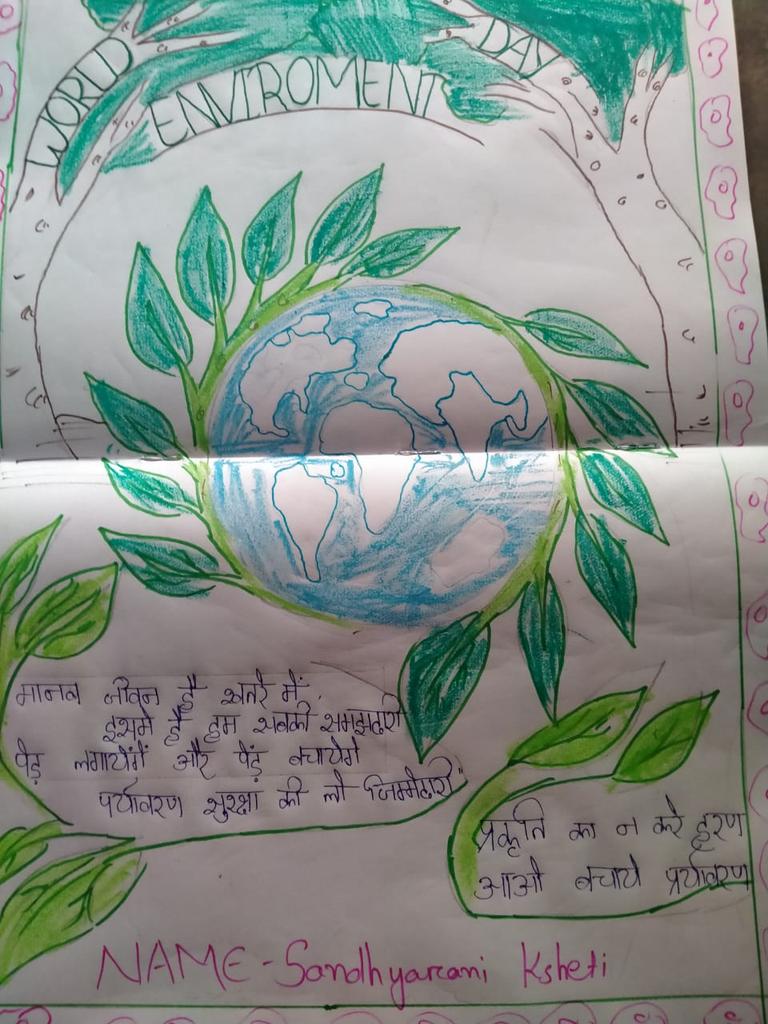 WORLD ENVIROMENT DAY
मानव जीवन है खतरे में,
इसमे है हम सबकी समझदारी
पेड़ लगायेंगें और पेड़ बचायेगे
पर्यावरण सुरक्षा की लो जिम्मेदारी"
प्रकृति का न करे हरण
आओ बचाये पर्यावरण
NAME - Sandhyarani Ksheti